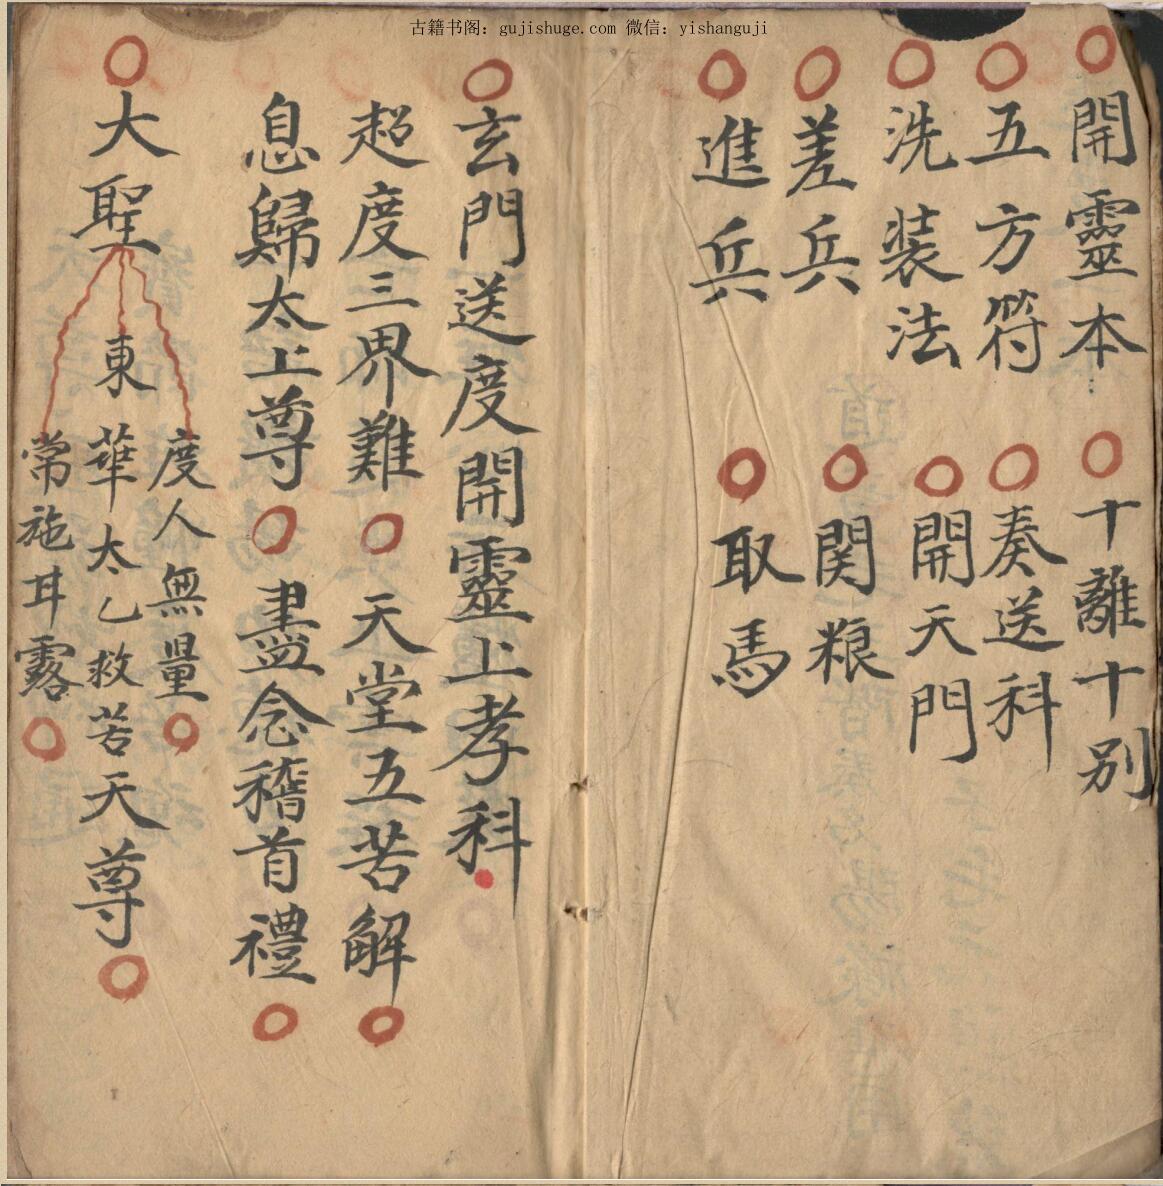 古籍书阁：gujishuge.com 微信：yishanguji
開靈本
十離十别
五方符
奏送科
洗装法
開天門
差兵
関粮
進兵
取馬
玄門送度開靈上孝科
超度三界難〇天堂五苦解〇
息歸太上尊〇盡念稽首禮〇
大聖
度人無量〇
東華太乙救苦天尊〇
常施耳露〇